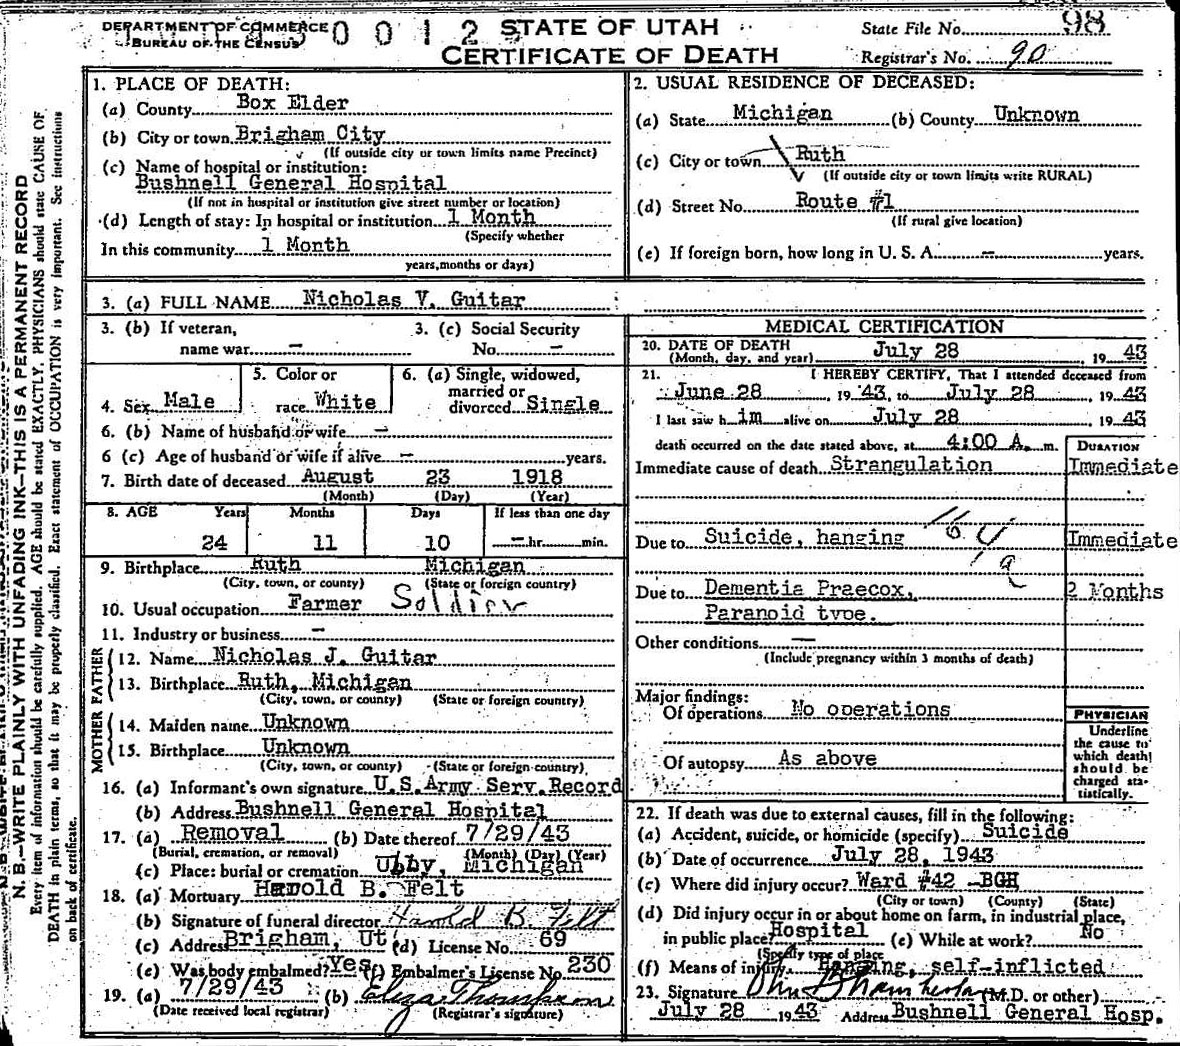 DEPARTMENT OF COMMERCE
BUREAU OF THE CENSUS
0 0 1 2
STATE OF UTAH
CERTIFICATE OF DEATH
State File No. 98
Registrar's No. 90
N. B.—WRITE PLAINLY WITH UNFADING INK—THIS IS A PERMANENT RECORD
Every item of information should be carefully supplied. AGE should be stated EXACTLY. PHYSICIANS should state CAUSE OF
DEATH in plain terms, so that it may be properly classified. Exact statement of OCCUPATION is very important. See instructions
on back of certificate.
1. PLACE OF DEATH:
(a) County Box Elder
(b) City or town Brigham City
(If outside city or town limits name Precinct)
(c) Name of hospital or institution:
Bushnell General Hospital
(If not in hospital or institution give street number or location)
(d) Length of stay: In hospital or institution 1 Month
(Specify whether
In this community 1 Month
years, months or days)
2. USUAL RESIDENCE OF DECEASED:
(a) State Michigan (b) County Unknown
(c) City or town Ruth
(If outside city or town limits write RURAL)
(d) Street No. Route #1
(If rural give location)
(e) If foreign born, how long in U. S. A. — years.
3. (a) FULL NAME Nicholas V. Guitar
3. (b) If veteran,
name war —
3. (c) Social Security
No. —
4. Sex Male
5. Color or
race White
6. (a) Single, widowed,
married or
divorced Single
6. (b) Name of husband or wife —
6 (c) Age of husband or wife if alive — years.
7. Birth date of deceased August 23 1918
(Month) (Day) (Year)
8. AGE Years Months Days If less than one day
24 11 10 — hr. min.
9. Birthplace Ruth Michigan
(City, town, or county) (State or foreign country)
10. Usual occupation Farmer Soldier
11. Industry or business —
FATHER
12. Name Nicholas J. Guitar
13. Birthplace Ruth, Michigan
(City, town, or county) (State or foreign country)
MOTHER
14. Maiden name Unknown
15. Birthplace Unknown
(City, town, or county) (State or foreign country)
16. (a) Informant's own signature U.S.Army Serv.Record
(b) Address Bushnell General Hospital
17. (a) Removal (b) Date thereof 7/29/43
(Burial, cremation, or removal) (Month) (Day) (Year)
(c) Place: burial or cremation Ubby, Michigan
18. (a) Mortuary Harold B. Felt
(b) Signature of funeral director Harold B. Felt
(c) Address Brigham, Ut (d) License No. 69
(e) Was body embalmed? Yes (f) Embalmer's License No. 230
19. (a) 7/29/43 (b) Eliza Thompson
(Date received local registrar) (Registrar's signature)
MEDICAL CERTIFICATION
20. DATE OF DEATH
(Month, day, and year) July 28, 1943
21. I HEREBY CERTIFY, That I attended deceased from
June 28, 1943, to July 28, 1943
I last saw him alive on July 28, 1943
death occurred on the date stated above, at 4:00 A. m.
DURATION
Immediate cause of death Strangulation Immediate
Due to Suicide, hanging Immediate
Due to Dementia Praecox, 2 Months
Paranoid type.
Other conditions —
(Include pregnancy within 3 months of death)
Major findings:
Of operations No operations
Of autopsy As above
PHYSICIAN
Underline
the cause to
which death
should be
charged sta-
tistically.
22. If death was due to external causes, fill in the following:
(a) Accident, suicide, or homicide (specify) Suicide
(b) Date of occurrence July 28, 1943
(c) Where did injury occur? Ward #42 -BGH
(City or town) (County) (State)
(d) Did injury occur in or about home on farm, in industrial place,
in public place? Hospital (e) While at work? No
(Specify type of place
(f) Means of injury Hanging, self-inflicted
23. Signature (M.D. or other)
July 28 1943 Address Bushnell General Hosp.